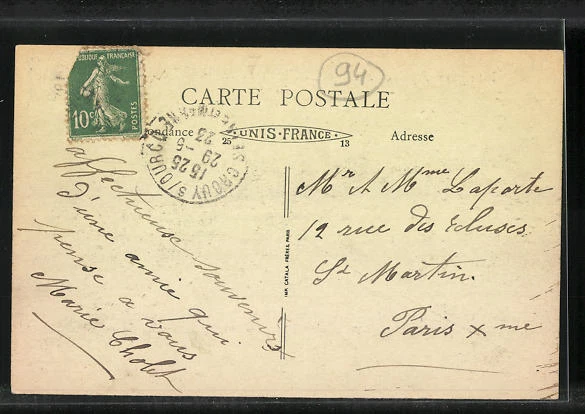 RÉPUBLIQUE FRANÇAISE
10c
POSTES
94
CARTE POSTALE
ondance
25 UNIS-FRANCE 13
Adresse
CROUY S/OURCQ
15 25
29 -5
23
affectueuse souvenirs
d'une amie qui
pense a vous
Marie Cholet
IMP. CATALA FRÈRES, PARIS
Mr A Mme Laporte
12 rue des Écluses
St Martin.
Paris x me